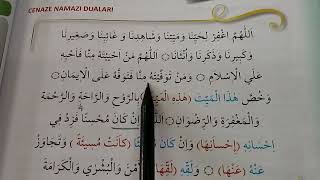 CENAZE NAMAZI DUALARI
اَللّٰهُمَّ اغْفِرْ لِحَيِّنَا وَمَيِّتِنَا وَشَاهِدِنَا وَ غَائِبِنَا وَصَغِيرِنَا
وَكَبِيرِنَا وَذَكَرِنَا وَاُنْثَانَا ۞ اَللّٰهُمَّ مَنْ اَحْيَيْتَهُ مِنَّا فَاَحْيِهِ
عَلَي الْاِسْلَامِ ۞ وَمَنْ تَوَفَّيْتَهُ مِنَّا فَتَوَفَّهُ عَلَى الْاِيمَانِ ۞
وَخُصَّ هٰذَا الْمَيِّتَ (هٰذِهِ الْمَيِّتَةَ) بِالرَّوْحِ وَالرَّاحَةِ وَالرَّحْمَةِ
وَالْمَغْفِرَةِ وَالرِّضْوَانِ ۞ اِنْ كَانَ مُحْسِنًا فَزِدْ فِي
اِحْسَانِهِ (اِحْسَانِهَا) وَاِنْ كَانَ (كَانَتْ مُسِيئَةً) وَتَجَاوَزْ
عَنْهُ (عَنْهَا) ۞ وَلَقِّهِ (لَقِّهَا) الْاَمْنَ وَالْبُشْرٰي وَالْكَرَامَةَ